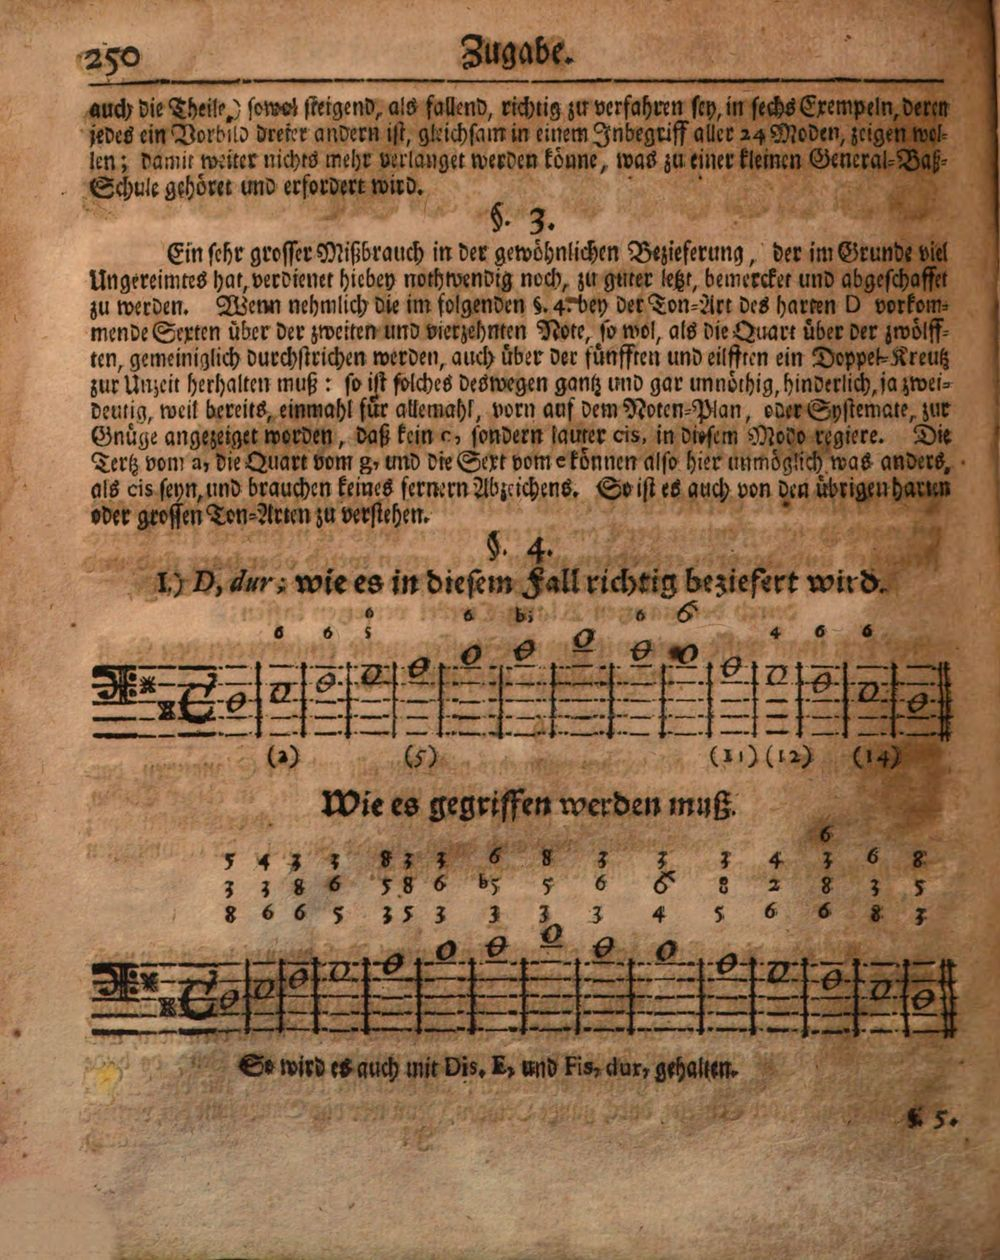 250 Zugabe.
auch die Theile,) sowol steigend, als fallend, richtig zu verfahren sey, in sechs Exempeln, deren
jedes ein Vorbild dreier andern ist, gleichsam in einem Inbegriff aller 24 Moden, zeigen wol-
len; damit weiter nichts mehr verlanget werden könne, was zu einer kleinen General-Baß-
Schule gehöret und erfordert wird.
§. 3.
Ein sehr grosser Mißbrauch in der gewöhnlichen Bezieferung, der im Grunde viel
Ungereimtes hat, verdienet hiebey nothwendig noch, zu guter letzt, bemercket und abgeschaffet
zu werden. Wenn nehmlich die im folgenden §. 4. bey der Ton-Art des harten D vorkom-
mende Sexten über der zweiten und vierzehnten Note, so wol, als die Quart über der zwölff-
ten, gemeiniglich durchstrichen werden, auch über der fünfften und eilfften ein Doppel-Kreutz
zur Unzeit herhalten muß: so ist solches deswegen gantz und gar unnöthig, hinderlich, ja zwei-
deutig, weil bereits, einmahl für allemahl, vorn auf dem Noten-Plan, oder Systemate, zur
Gnüge angezeiget worden, daß kein c, sondern lauter cis, in diesem Modo regiere. Die
Tertz vom a, die Quart vom g, und die Sext vom e können also hier unmöglich was anders,
als cis seyn, und brauchen keines fernern Abzeichens. So ist es auch von den übrigen harten
oder grossen Ton-Arten zu verstehen.
§. 4.
I.) D, dur; wie es in diesem Fall richtig beziefert wird.
6 6 b5 6 6
6 6 5 4 6 6
C
(2) (5) (11) (12) (14)
Wie es gegriffen werden muß.
6
5 4 3 3 8 3 3 6 8 3 3 3 4 3 6 8
3 3 8 6 5 8 6 b5 5 6 6 8 2 8 3 5
8 6 6 5 3 5 3 3 3 3 4 5 6 6 8 3
C
So wird es auch mit Dis, E, und Fis, dur, gehalten.
§. 5.